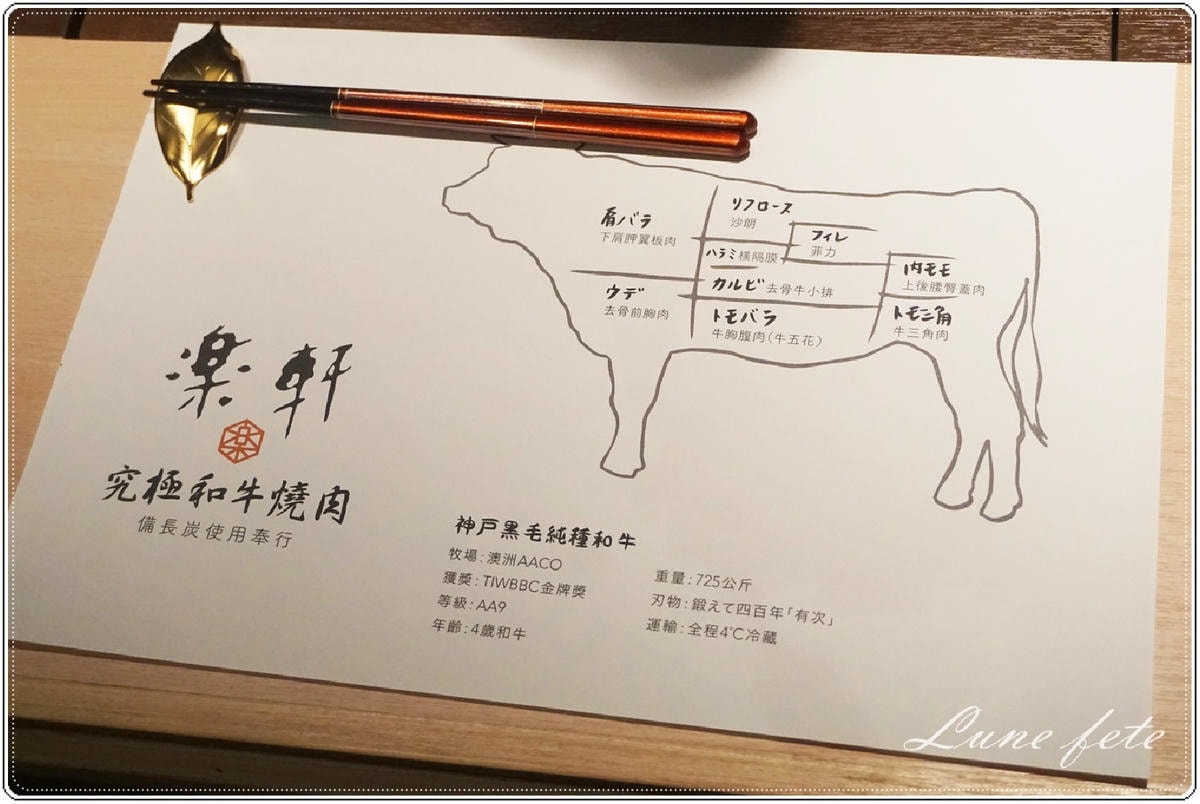 肩バラ
下肩胛翼板肉
リブロース
沙朗
フィレ
菲力
ハラミ 橫隔膜
内モモ
上後腰臀蓋肉
ウデ
去骨前胸肉
カルビ 去骨牛小排
トモバラ
牛胸腹肉(牛五花)
トモ三角
牛三角肉
楽軒
楽
究極和牛燒肉
備長炭使用奉行
神戸黒毛純種和牛
牧場:澳洲AACO
獲獎:TIWBBC金牌獎
等級:AA9
年齡:4歲和牛
重量:725公斤
刃物:鍛えて四百年「有次」
運輸:全程4℃冷藏
Lune fete